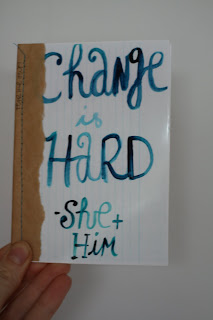 Change
is
HARD
-She +
Him